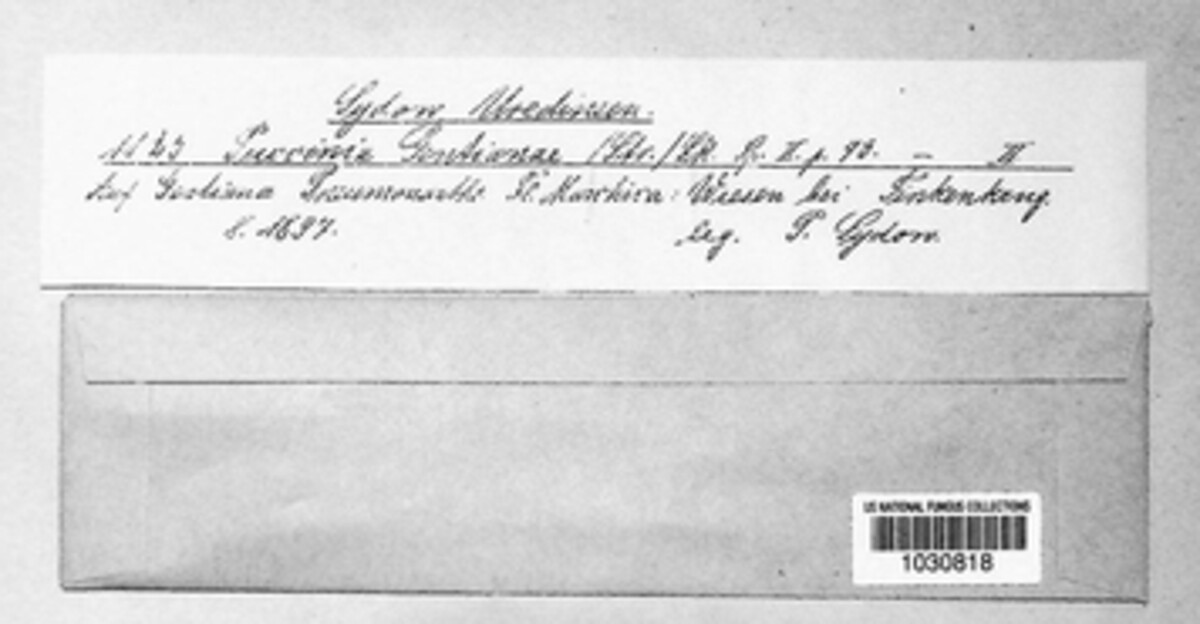 Sydow Uredineen.
1123 Puccinia Gentianae (Str.) Lk. II. p. 93. — II
Auf Gentiana Pneumonanthe Fl. Marchica: Wiesen bei Finkenkrug.
8. 1897. leg. P. Sydow.
US NATIONAL FUNGUS COLLECTIONS
1030818